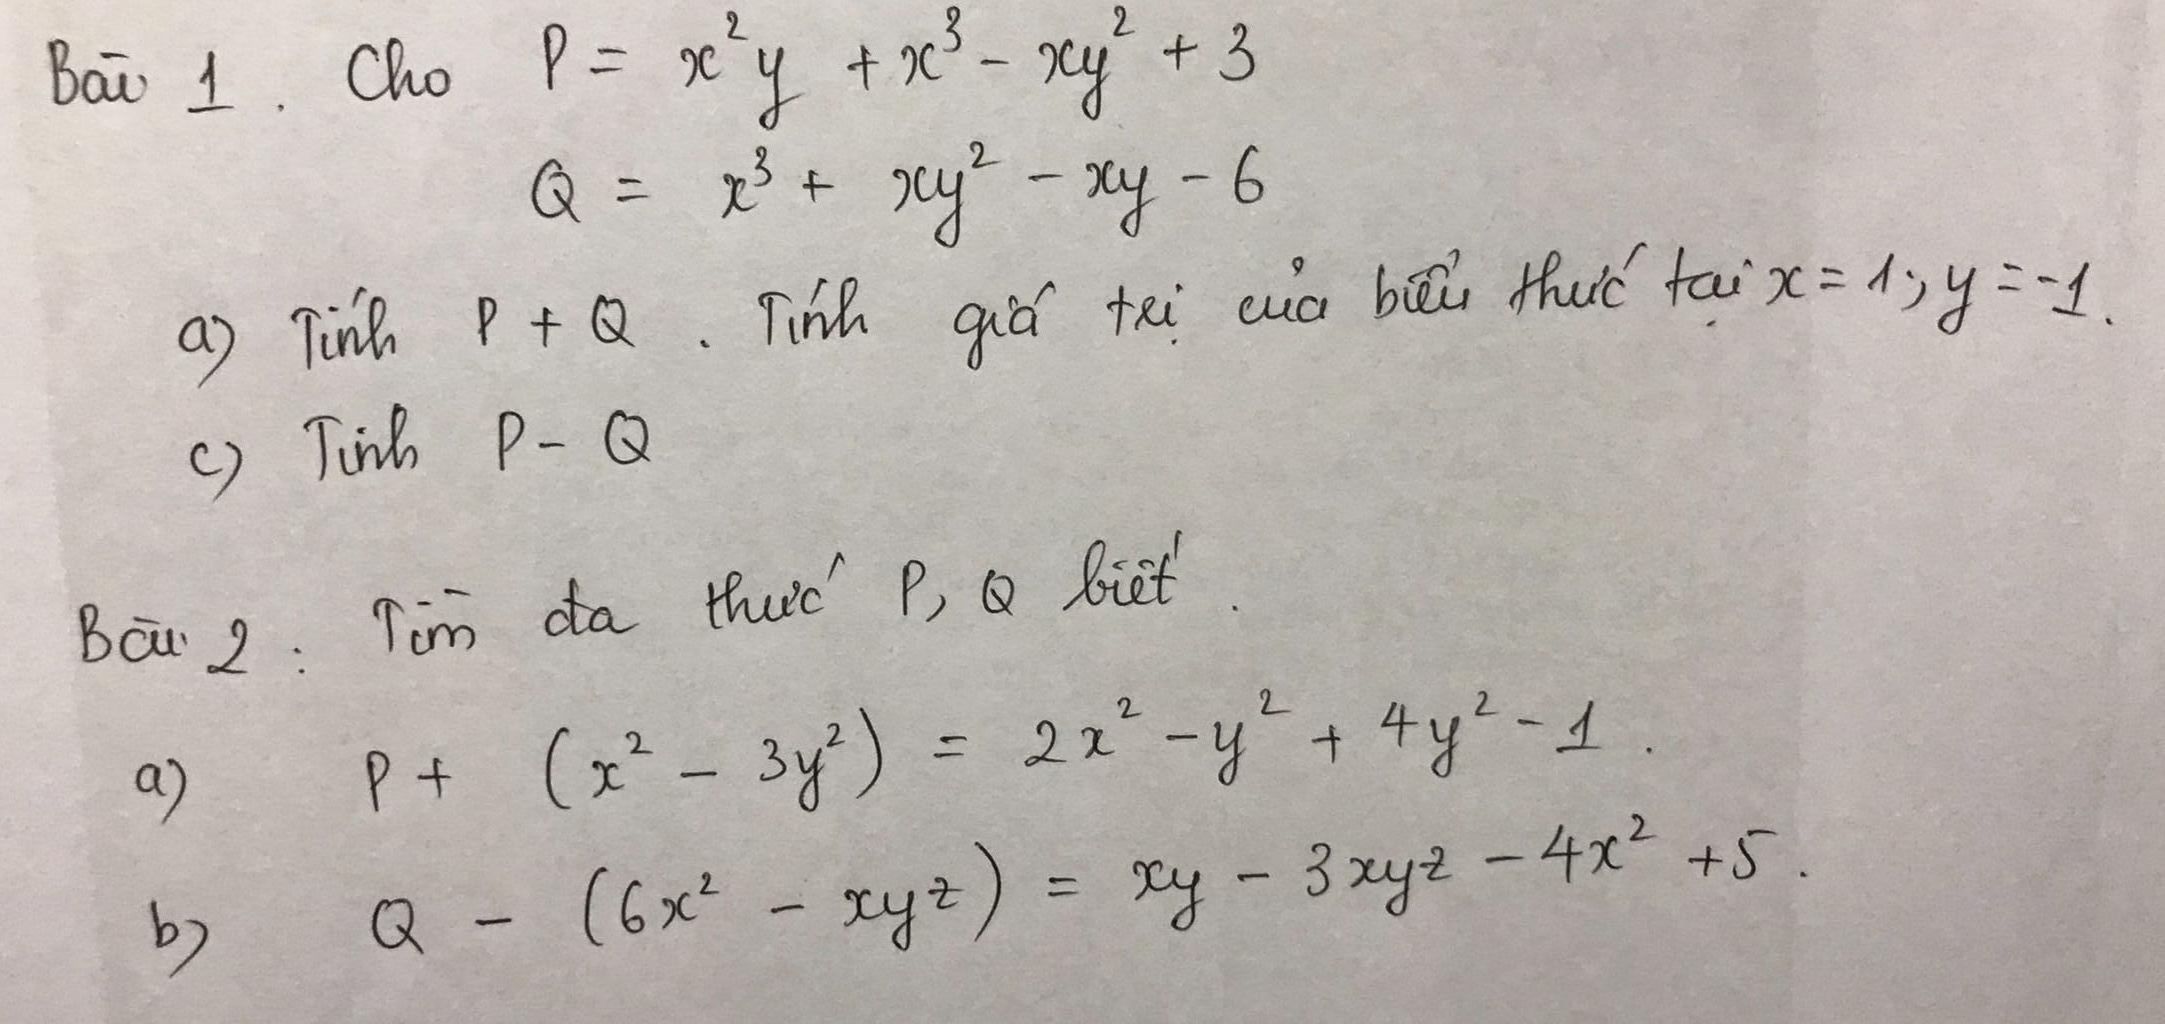 Bài 1. Cho P = x²y + x³ - xy² + 3
Q = x³ + xy² - xy - 6
a) Tính P + Q. Tính giá trị của biểu thức tại x = 1; y = -1.
c) Tính P - Q
Bài 2: Tìm đa thức P, Q biết.
a) P + (x² - 3y²) = 2x² - y² + 4y² - 1.
b) Q - (6x² - xyz) = xy - 3xyz - 4x² + 5.